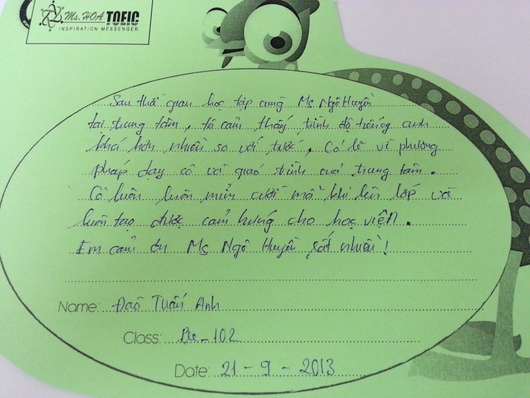 Ms. HOA TOEIC
INSPIRATION MESSENGER
Sau thời gian học tập cùng Ms Ngô Huyền
tại trung tâm, tớ cảm thấy trình độ tiếng anh
khá hơn nhiều so với trước. Có lẽ vì phương
pháp dạy cô và giáo trình của trung tâm.
Cô luôn luôn mỉm cười mỗi khi lên lớp và
luôn tạo được cảm hứng cho học viên.
Em cảm ơn Ms Ngô Huyền rất nhiều!
Name: Đào Tuấn Anh
Class: Pre-102
Date: 21-9-2013